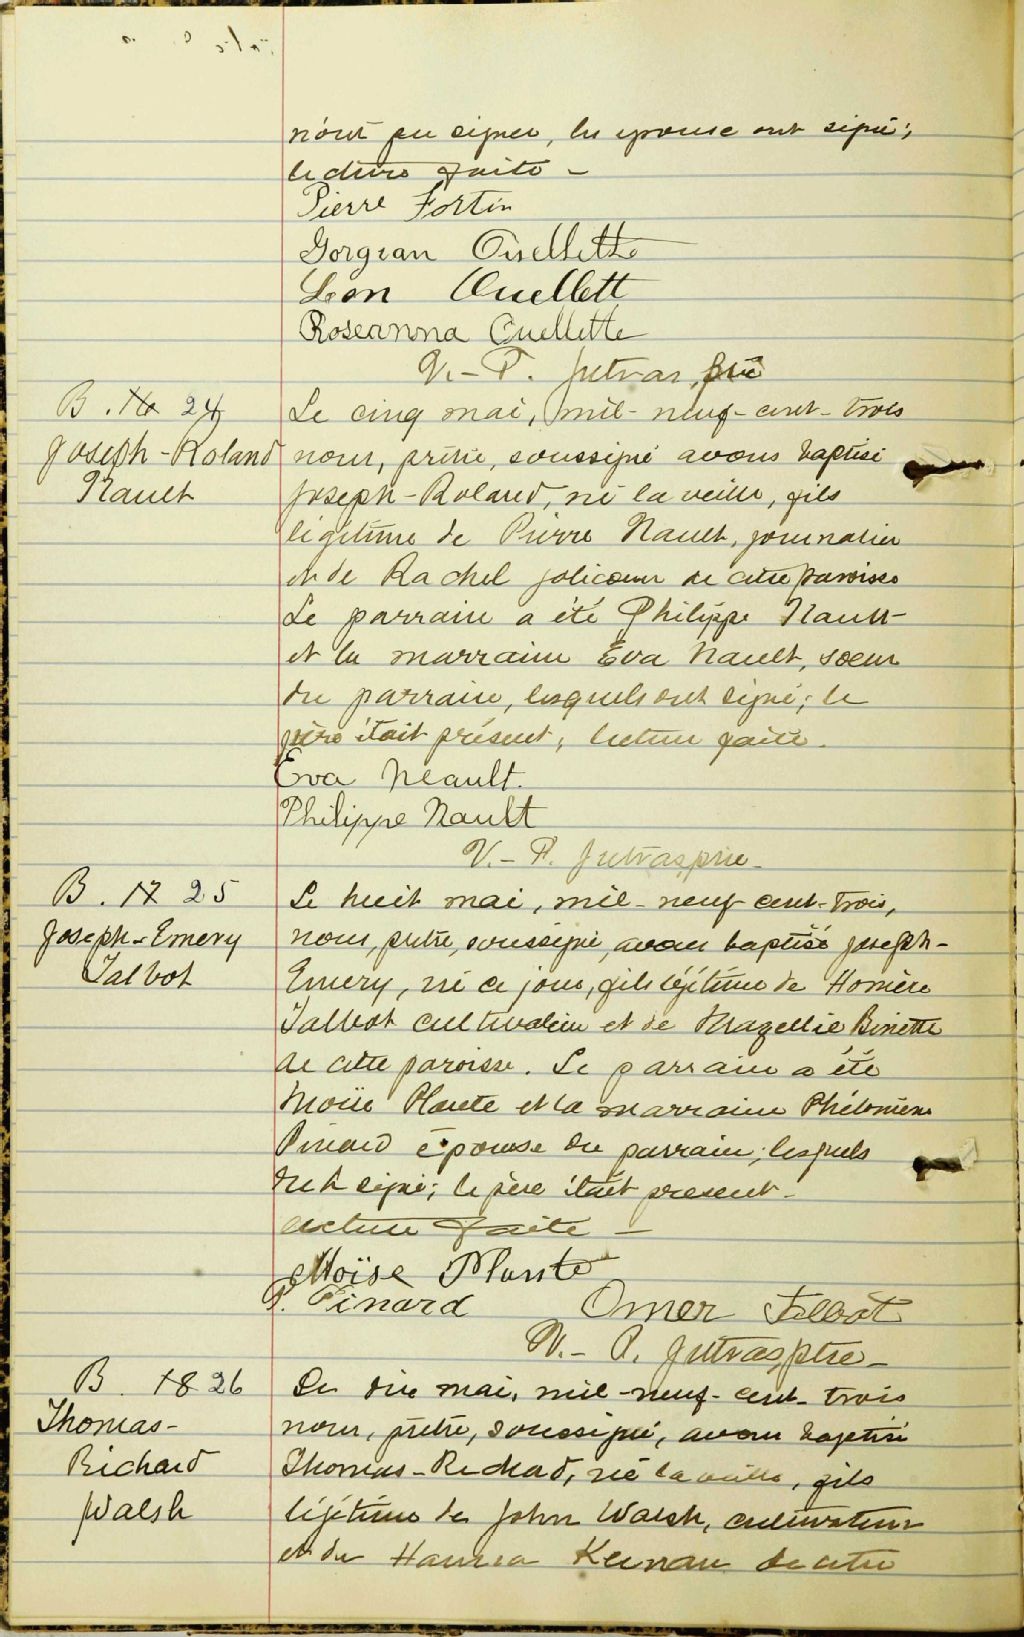 n'ont pu signer, les epouse ont signé;
lecture faite –
Pierre Fortin
Gorgian Ouellette
Léon Ouellett
Roseanna Ouellette
V.-P. Jutras, ptre
B. 16 24
Joseph-Roland
Nault
Le cinq mai, mil-neuf-cent-trois
nous, prêtre, soussigné avons baptisé
Joseph-Roland, né la veille, fils
légitime de Pierre Nault, journalier
et de Rachel Jolicoeur de cette paroisse
Le parrain a été Philippe Nault
et la marraine Eva Nault, soeur
du parrain, lesquels ont signé; le
père était présent, lecture faite.
Eva Neault.
Philippe Nault
V.-P. Jutras, ptre
B. 17 25
Joseph-Emery
Talbot
Le huit mai, mil-neuf cent-trois,
nous, prêtre, soussigné, avons baptisé Joseph-
Emery, né ce jour, fils légitime de Homère
Talbot cultivateur et de Binette
de cette paroisse. Le parrain a été
Moïse Plante et la marraine Philomène
Pinard épouse du parrain; lesquels
ont signé; le père était present-
lecture faite –
Moïse Plante
P. Pinard Omer Talbot
V.-P. Jutras, ptre –
B. 18 26
Thomas-
Richard
Walsh
Le dix mai, mil-neuf-cent-trois
nous, prêtre, soussigné, avons baptisé
Thomas-Richard, né la veille, fils
légitime de John Walsh, cultivateur
et de Hanna Keenan de cette